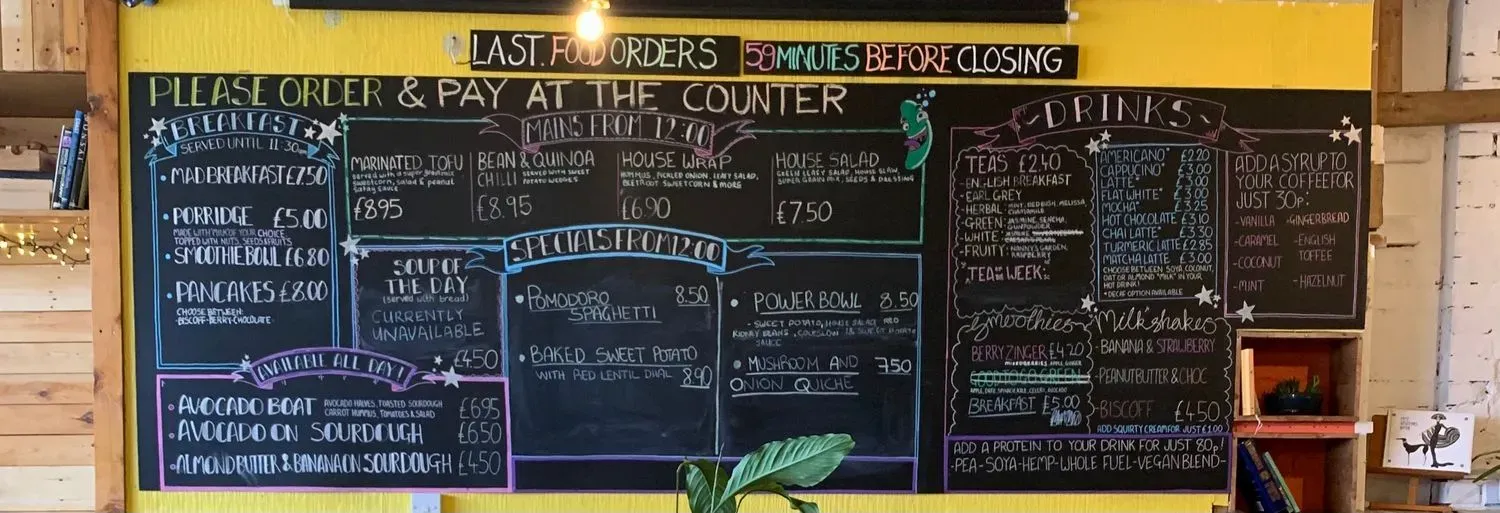 LAST FOOD ORDERS 59 MINUTES BEFORE CLOSING
PLEASE ORDER & PAY AT THE COUNTER
BREAKFAST
SERVED UNTIL 11:30am
• MAD BREAKFAST £7.50
• PORRIDGE £5.00
MADE WITH MILK OF YOUR CHOICE
TOPPED WITH NUTS, SEEDS & FRUITS
• SMOOTHIE BOWL £6.80
• PANCAKES £8.00
CHOOSE BETWEEN:
-BISCOFF-BERRY-CHOCOLATE-
MAINS FROM 12:00
MARINATED TOFU
served with a super grain mix
sweetcorn, salad & peanut
satay sauce
£8.95
BEAN & QUINOA
CHILLI SERVED WITH SWEET
POTATO WEDGES
£8.95
HOUSE WRAP
HUMMUS, PICKLED ONION, LEAFY SALAD,
BEETROOT SWEETCORN & MORE
£6.90
HOUSE SALAD
GREEN LEAFY SALAD, HOUSE SLAW,
SUPER GRAIN MIX, SEEDS & DRESSING
£7.50
SOUP OF
THE DAY
(served with bread)
CURRENTLY
UNAVAILABLE
£4.50
SPECIALS FROM 12:00
• POMODORO 8.50
SPAGHETTI
• BAKED SWEET POTATO
WITH RED LENTIL DHAL 8.90
• POWER BOWL 8.50
- SWEET POTATO, HOUSE SALAD, RED
KIDNEY BEANS, COLESLOW POTATO
SAUCE
• MUSHROOM AND 7.50
ONION QUICHE
AVAILABLE ALL DAY!
• AVOCADO BOAT AVOCADO HALVES, TOASTED SOURDOUGH £6.95
CARROT HUMMUS, TOMATOES & SALAD
• AVOCADO ON SOURDOUGH £6.50
• ALMOND BUTTER & BANANA ON SOURDOUGH £4.50
~DRINKS~
TEAS £2.40
-ENGLISH BREAKFAST
-EARL GREY
-HERBAL: MINT, RED BUSH, MELISSA,
CHAMOMILE
-GREEN: JASMINE, SENCHA,
GUNPOWDER
-WHITE: JASMINE
-FRUITY: NANNY'S GARDEN,
RASPBERRY
"TEA WEEK":
AMERICANO* £2.20
CAPPUCINO* £3.00
LATTE* £3.00
FLAT WHITE* £3.00
MOCHA* £3.25
HOT CHOCOLATE £3.10
CHAI LATTE* £3.30
TURMERIC LATTE £2.85
MATCHA LATTE £3.00
CHOOSE BETWEEN SOYA, COCONUT,
OAT OR ALMOND "MILK" IN YOUR
HOT DRINK!
* DECAF OPTION AVAILABLE
ADD A SYRUP TO
YOUR COFFEE FOR
JUST 30p:
-VANILLA -GINGERBREAD
-CARAMEL -ENGLISH
TOFFEE
-COCONUT
-MINT -HAZELNUT
Smoothies
BERRY ZINGER £4.20
MIXED BERRIES, APPLE, GINGER
GOOD TO GO GREEN
BREAKFAST £5.00
Milk'shakes
-BANANA & STRAWBERRY
-PEANUT BUTTER & CHOC
-BISCOFF £4.50
ADD SQUIRTY CREAM FOR JUST £1.00
ADD A PROTEIN TO YOUR DRINK FOR JUST 80p!
-PEA-SOYA-HEMP-WHOLE FUEL-VEGAN BLEND-